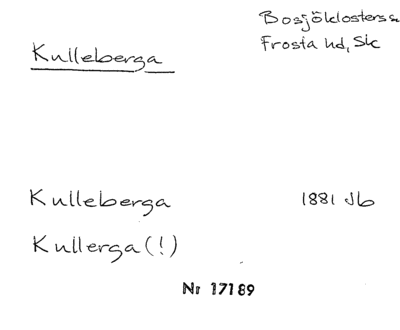 Bosjöklosters sn
Frosta hd, Sk
Kulleberga
Kulleberga 1881 Jb
Kullerga (!)
Nr 17189